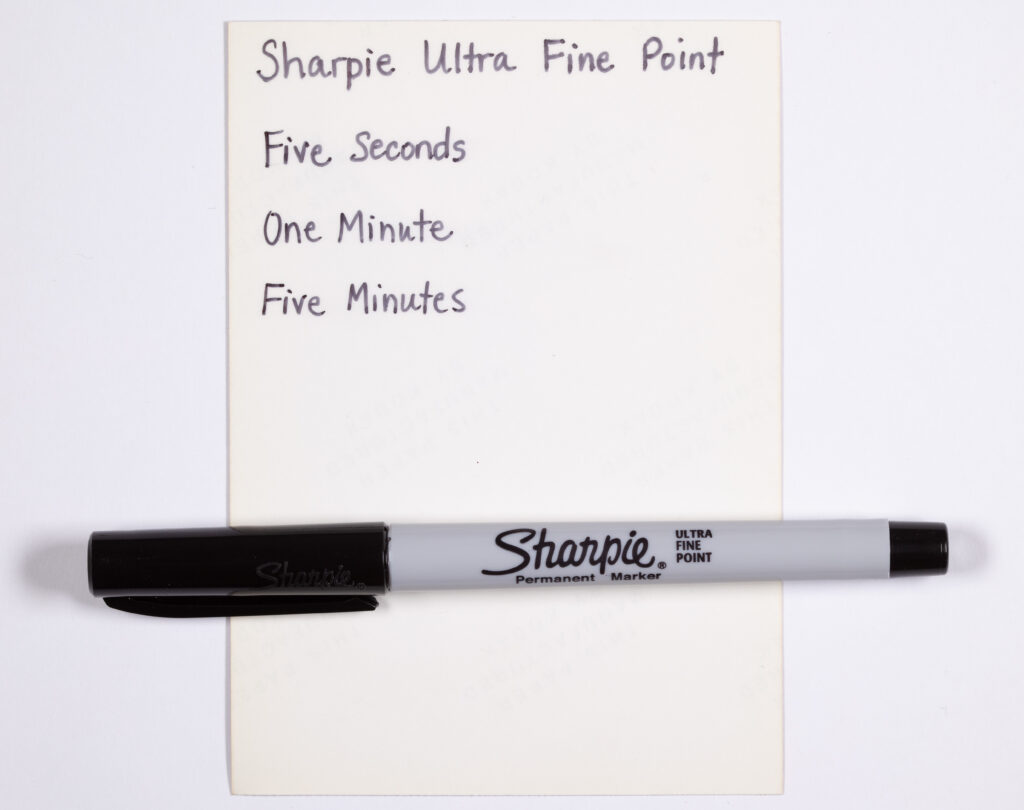 Sharpie Ultra Fine Point
Five Seconds
One Minute
Five Minutes
Sharpie®
Sharpie®
Permanent Marker
ULTRA
FINE
POINT